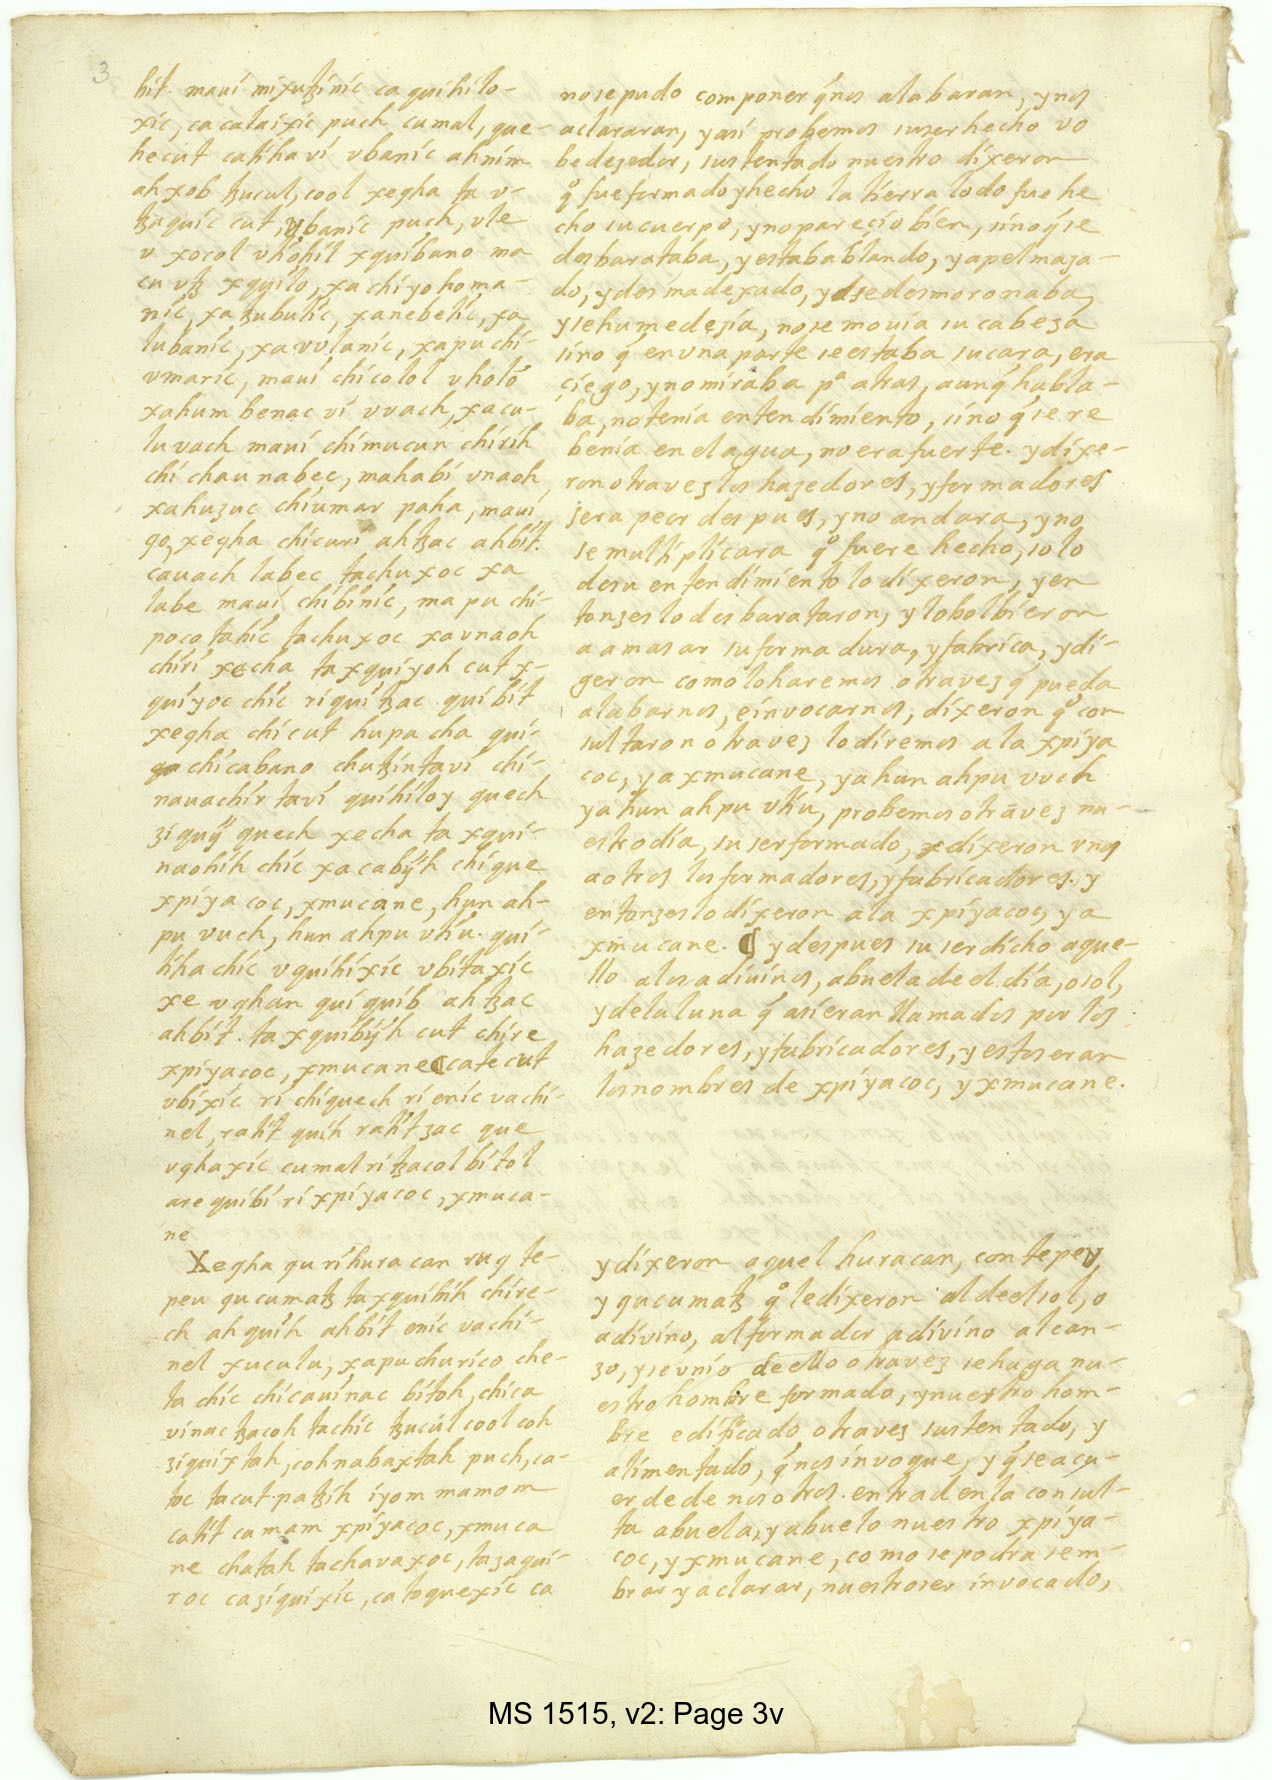 3
bit. mauí mixutzíníc ca quíhílo-
xíc, ca calaíxíc puch cumal, que-
hecút catíhaví vbaníc ahním
ahxob tzucul, cool xegha ta v-
tzaquíc cut, vbaníc puch, vle
v xocol vtíohíl xquíbano ma
cu vtz xquílo, xa chí yohoma-
níc, xa tzubulíc, xanebelíc, xa
lubaníc, xavvlaníc, xapuchí-
vmaríc, mauí chícolol vholó
xahum benac ví vvach, xacu-
lu vach mauí chímucun chíríh
chí chau nabec, mahabí vnaoh
xahuzuc chíumar paha, mauí
qo, xegha chícurí ahtzac ahbít.
cauach labec tachuxoc xa
labe mauí chíbíníc, ma pu chí-
pocotahíc tachuxoc xavnaoh
chírí xecha ta xquíyoh cut x-
quíyoc chíc ríquítzac quíbít
xegha chícut hupacha quí-
chícabano chutzíntaví chí-
nauachír taví quíhíloy quech
zíquÿ quech xecha ta xquí-
naohíh chíc xacabÿh chíque
xpíyacoc, xmucane, hun ah-
pu vuch, hun ahpu vtíu. quí-
tíha chíc vquíhíxíc vbítaxíc
xe vghan quí quíb ahtzac
ahbít. ta xquíbÿh cut chíre
xpíyacoc, xmucane ¶ catecut
vbíxíc rí chíquech rí eníc vachí-
nel, ratít quíh ratít zac que
vghaxíc cumal rí tzacol bítol
are quíbí rí xpíyacoc, xmuca-
ne
Xegha qu ríhuracan ruq te-
peu qucumatz ta xquíbíh chíre-
ch ahquíh ahbít eníc vachí-
nel xuculu, xapuchuríco che-
ta chíc chícauínac bítoh, chíca
vínac tzacoh tachíc tzucúl cool coh
zíquíxtah, cohnabaxtah puch, ca-
toc tacut patzíh íyom mamom
catít camam xpíyacoc, xmuca
ne chatah tachavaxoc, tazaquí-
roc cazíquíxíc, catoquexíc ca
nosepudo componer q́nos alabaran, ynos
aclararan, yasí probemos suserhecho vo
bedezedor, sustentado nuestro díxeron
qº fueformadoyhecho la tíerra lodo fue he
cho sucuerpo, ynoparecío bíen, síno q́ se
desbarataba, yestabablando, yapelmaza-
do, ydesmadexado, y se desmoronaba,
ysehumedezía, nosemouía su cabeza
síno q́ envna parte seestaba sucara, era
cíego, ynomíraba pª atras, aunq́ habla-
ba, notenía entendímíento, síno q́ se re
benía en el agua, no era fuerte. ydíxe-
ron otravez los hazedores, yformadores
sera peor despues, yno andara, yno
se multíplícara qº fuere hecho, solo
desu entendímíento lo díxeron, yen
tonzes lo desbarataron, y lobolbíeron
a amasar suformadura, yfabríca, ydí-
geron como loharemos otravez q́ pueda
alabarnos, eínvocarnos, díxeron qº con
sultaron otravez lo díremos a la xpíya
coc, ya xmucane, ya hun ahpu vvch
ya hun ahpu vtíu, probemos otravez nu-
estro día, su serformado, díxeron vnos
a otros los formadores, yfabrícadores. y
entonzes lo díxeron a la xpíyacoc, ya
xmucane. ¶ ydespues su serdícho aque-
llo a los adíuínos, abuela de el día, o sol,
ydelaluna q́ así eran llamados por los
hazedores, yfabrícadores, yestos eran
los nombres de xpíyacoc, yxmucane.
ydíxeron aquel huracan, con tepeu,
y qucumatz qº le díxeron al deel sol, o
adívíno, al formador adívíno alcan-
zo, yseunío deello otravez sehaga nu-
estro hombre formado, ynuestro hom-
bre edífícado otravez sustentado, y
alímentado, q́nos ínvoque, y q́ se acu-
erde de nosotros. entrad en la consul-
ta abuela, yabuelo nuestro xpíya-
coc, yxmucane, como se podra sem-
brar yaclarar, nuestroser ínvocado,
MS 1515, v2: Page 3v